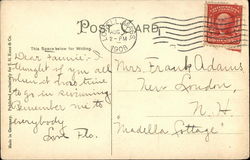 POST CARD
This Space below for Writing.
AUG
2-PM
1908
Dear Fannie:- I
thought of you all
when at
to go in swimming
Remember me to
everybody
Love Flo.
Mrs. Frank Adams
New London
N. H.
"Madella Cottage"
Made in Germany.